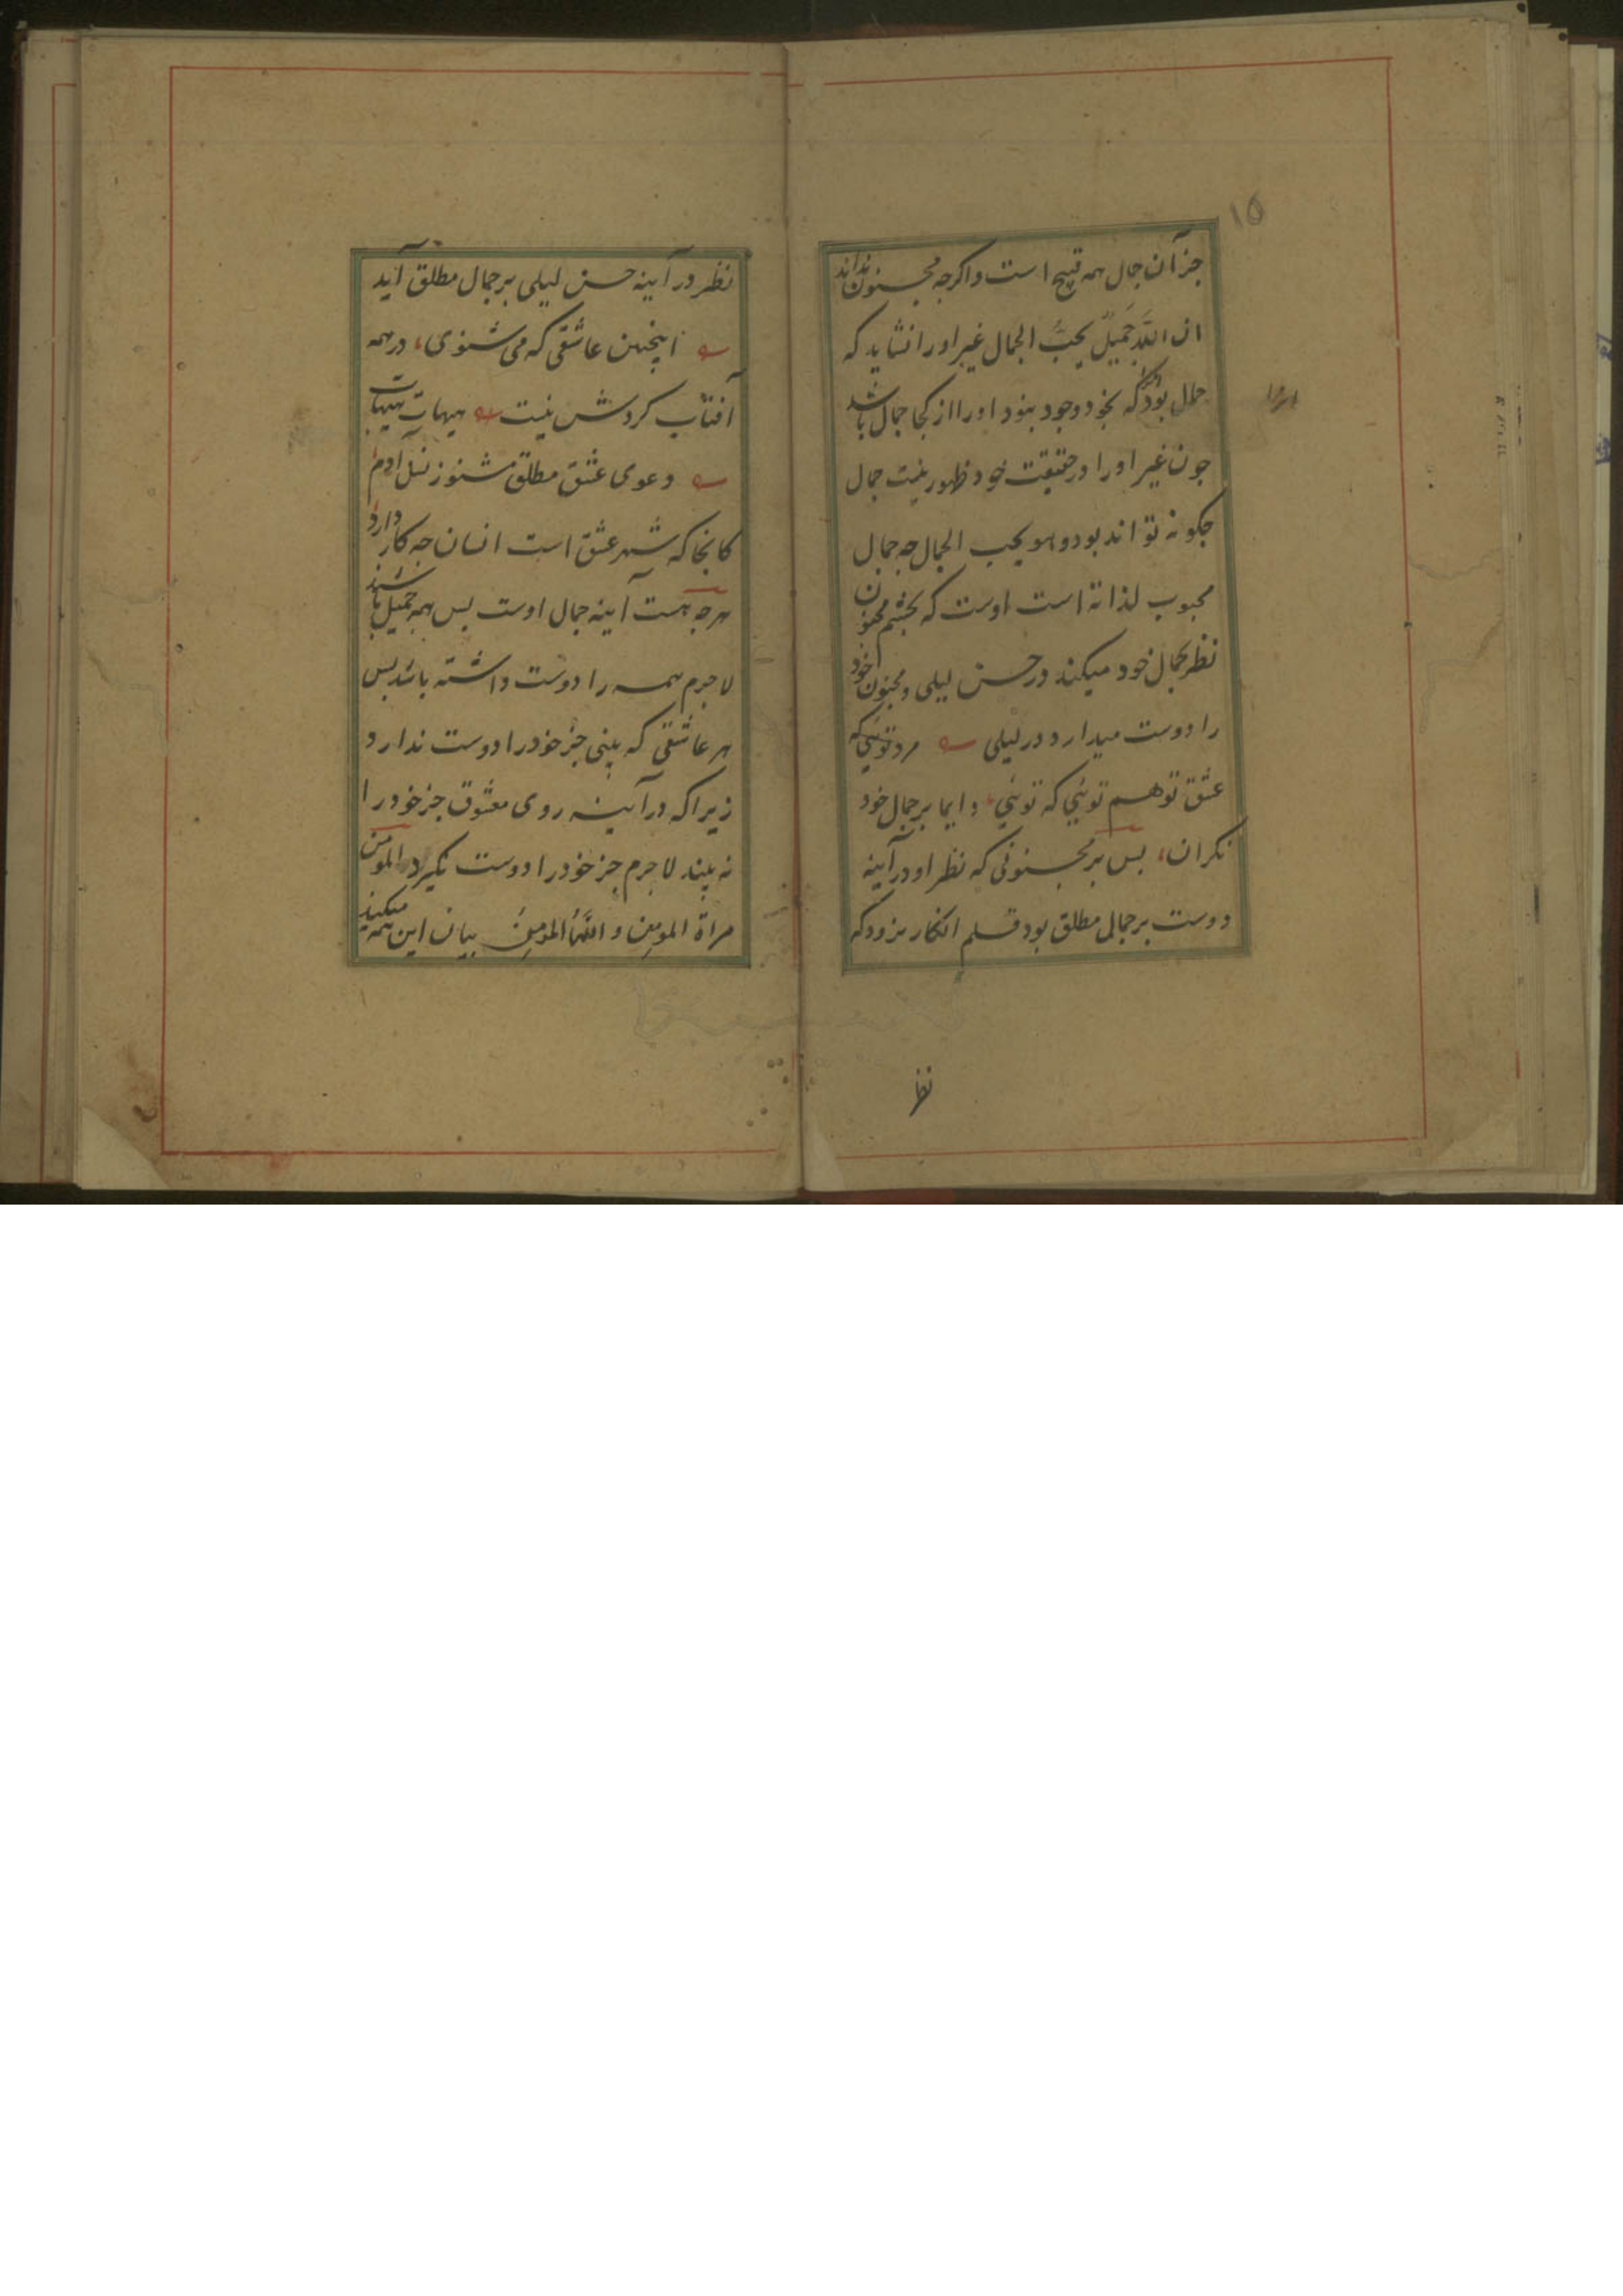 ۱۵
جز آن جمال همه قبیح است و اگرچه مجنون نداند
ان الله جَمیلٌ یحبُّ الجمال غیر او را نشاید که
جمال بود که بخود وجود نبود او را از کجا جمال باشد
جون غیر او را در حقیقت خود ظهور نیست جمال
جکونه تواند بود و هو یحب الجمال جه جمال
محبوب لذاته است اوست که بجشم مجنون
نظر بجمال خود میکند در حسن لیلی و مجنون خود
را دوست میدارد در لیلی مرد توئی که
عشق تو هم توئی که توئی، دایما بر جمال خود
نکران، بس بر مجنونی که نظر او در آینه
دوست بر جمالی مطلق بود قلم انکار مرود که
نظر
نظر در آینه حسن لیلی بر جمال مطلق آید
اینجنین عاشقی که می شنوی، در همه
آفتاب کردش نیست هیهات هیهات
دعوی عشق مطلق مشنو ز نسل آدم
کانجا که شهر عشق است انسان جه کار دارد
هرجه هست آینه جمال اوست بس همه جمیل باشند
لاجرم همه را دوست داشته باشد بس
هر عاشقی که بینی جز خود را دوست ندارد
زیرا که در آینه روی معشوق جز خود را
نه بیند لاجرم جز خود را دوست نکیرد المومن
مراة المومِن و اللهُ المومِنُ بیان این همه میکند